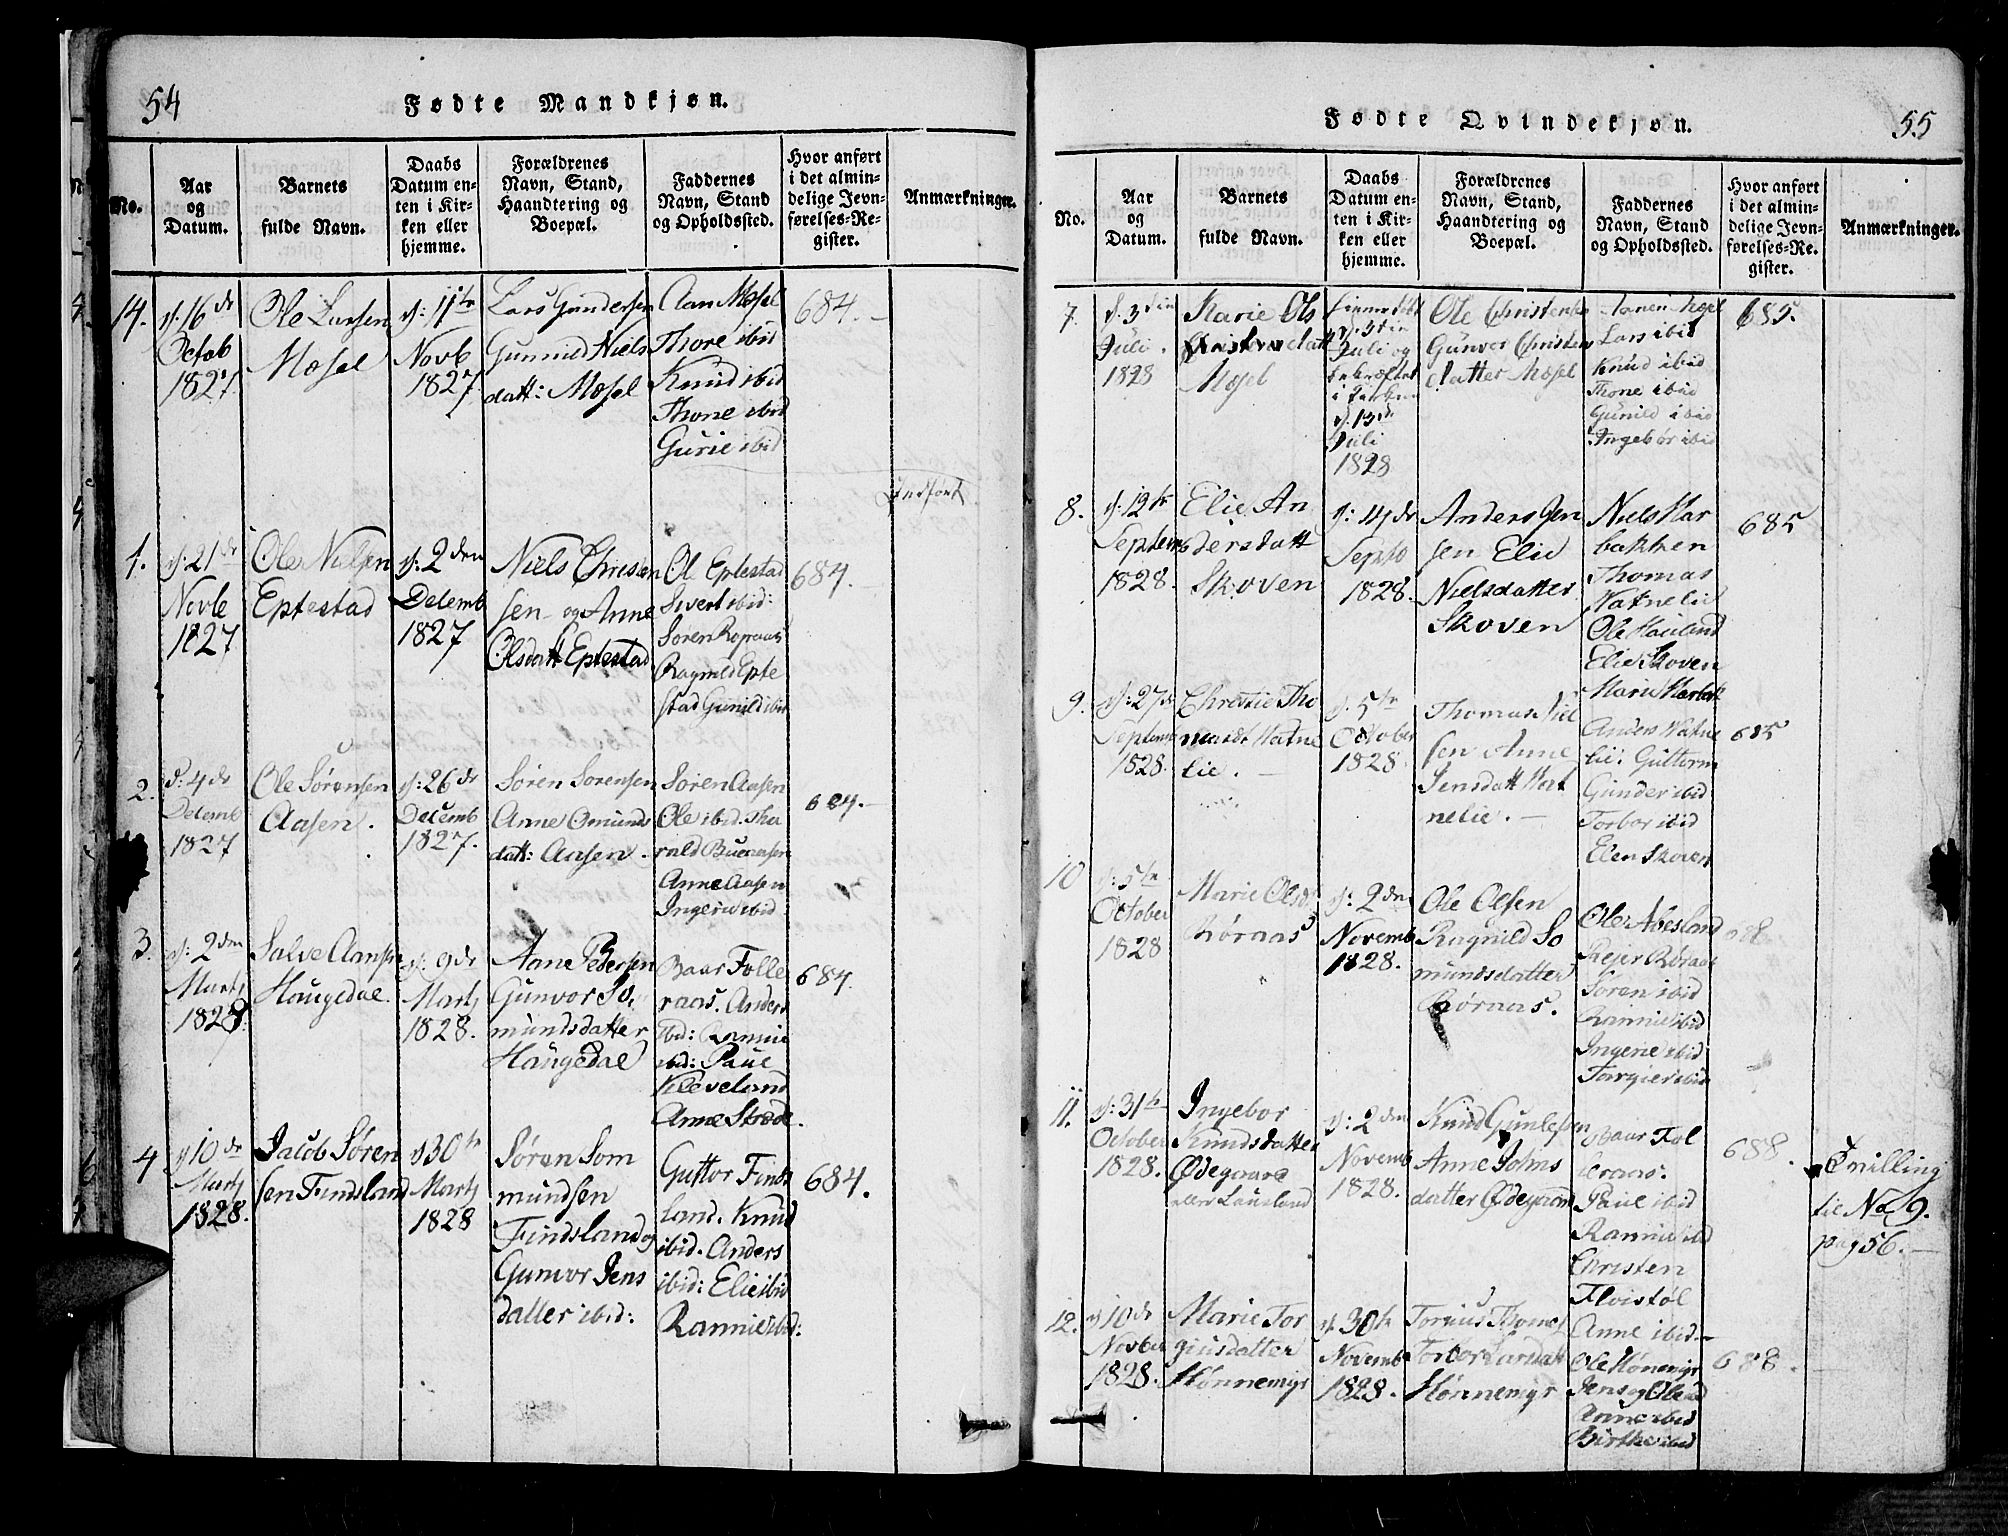 54
Fødte Mandkjøn.
No.
Aar
og
Datum.
Barnets
fulde Navn.
Daabs
Datum en-
ten i Kir-
ken eller
hjemme.
Forældrenes
Navn, Stand,
Haandtering og
Boepæl.
Faddernes
Navn, Stand
og Opholdssted.
Hvor anført
i det almin-
delige Jevn-
førelses-Re-
gister.
Anmærkninger.
14.
d: 16de
Octob
1827.
Ole Larsen
Mosel
d: 11te
Novb
1827.
Lars Gundersen
Gunnild Niels
datt: Mosel
Aan Mosel
Thore ibid
Knud ibid
Thone ibid
Gurie ibid
684.
Indført
1.
d: 21de
Novbe
1827
Ole Nielsen
Eptestad
d: 2den
Decemb
1827
Niels Christen
sen og Anne
Olsdatt Eptestad
Ole Eptestad
Sivert ibid:
Søren Roraas
Ragnild Epte
stad Gunild ibid
684.
2.
d: 4de
Decemb
1827
Ole Sørensen
Aasen.
d: 26de
Decemb
1827.
Søren Sorensen
Anne Omunds
datt: Aasen.
Søren Aasen
Ole ibid. Tha
rald Bueaasen
Anne Aasen
Ingerie ibid
684.
3.
d: 2den
Marts
1828.
Salve Aansen
Haugedal.
d: 9de
Marts
1828.
Aane Pedersen
Gunvor So,
mundsdatter
Haugedal
Baar Folle
raas. Anders
ibid: Rannie
ibid: Paul
Kleveland
Anne Strøde.
684.
4
d 10de
Marts
1828.
Jacob Søren
sen Findsland
d 30te
Marts
1828
Søren Som
mundsen
Findsland og
Gunvor Jens
datter ibid:
Guttor Finds
land. Knud
ibid. Anders
ibid: Elie ibid
Rannie ibid:
684.
55
Fødte Qvindekjøn.
No.
Aar
og
Datum.
Barnets
fulde Navn.
Daabs
Datum en-
ten i Kir-
ken eller
hjemme.
Forældrenes
Navn, Stand,
Haandtering og
Boepæl.
Faddernes
Navn, Stand
og Opholdssted.
Hvor anført
i det almin-
delige Jevn-
førelses-Re-
gister.
Anmærkninger.
7.
d. 3die
Juli.
1828
Marie Ols
datt
Mosel
d. 3die
Juli og
bekræftet
i Kirken
d. 13de
Juli
1828
Ole Christensen
Gunver Christens
datter Mosel
Aanen Mosel
Lars ibid
Knud ibid
Thone ibid
Gunild ibid
Ingebør ibid
685.
8.
d: 12te
Septemb
1828.
Elie An
dersdatt
Skoven
d: 14de
Septb
1828.
Anders Jen
sen Elie
Nielsdatter
Skoven
Niels Har
bakken
Thomas
Watnelie
Ole Hauland
Elie Skoven
Marie Harbak
685
9.
d: 27de
Septemb
1828.
Christie Tho
masdt Watne
lie.
d. 5te
October
1828.
Thomas Niel
sen Anne
Jensdatt Wat
nelie.
Anders Watne
lie: Guttorm
Gunder ibid
Torbor ibid
Elen Skoven
685
10
d: 5te
October
1828
Marie Olsdt
Røraas
d: 2den
Novemb
1828.
Ole Olsen
Ragnild So
mundsdatter
Røraas.
Ole Abesland
Reier Røraas
Søren ibid
Rannie ibid
Ingerie ibid
Torgier ibid
688
11.
d: 31te
October
1828.
Ingebor
Knudsdatter
Ødegaard
eller Lausland
d: 2den
Novemb
1828.
Knud Gunlefsen
Anne Johns
datter Ødegaard
Baar Fol
leraas:
Paul ibid
Rannie ibid
Christen
Flvistøl
Anne ibid.
688.
Tvilling
til No 9.
pag 56.
12.
d 10de
Novber
1828.
Marie Tor
giusdatter
Hønnemyr
d. 30te
Novemb
1828.
Torgius Thomes
Torbor Larsdatt
Hønnemyr
Ole Hønemyr
Jens og Ole ibid
Anne ibid
Birthe ibid
688.